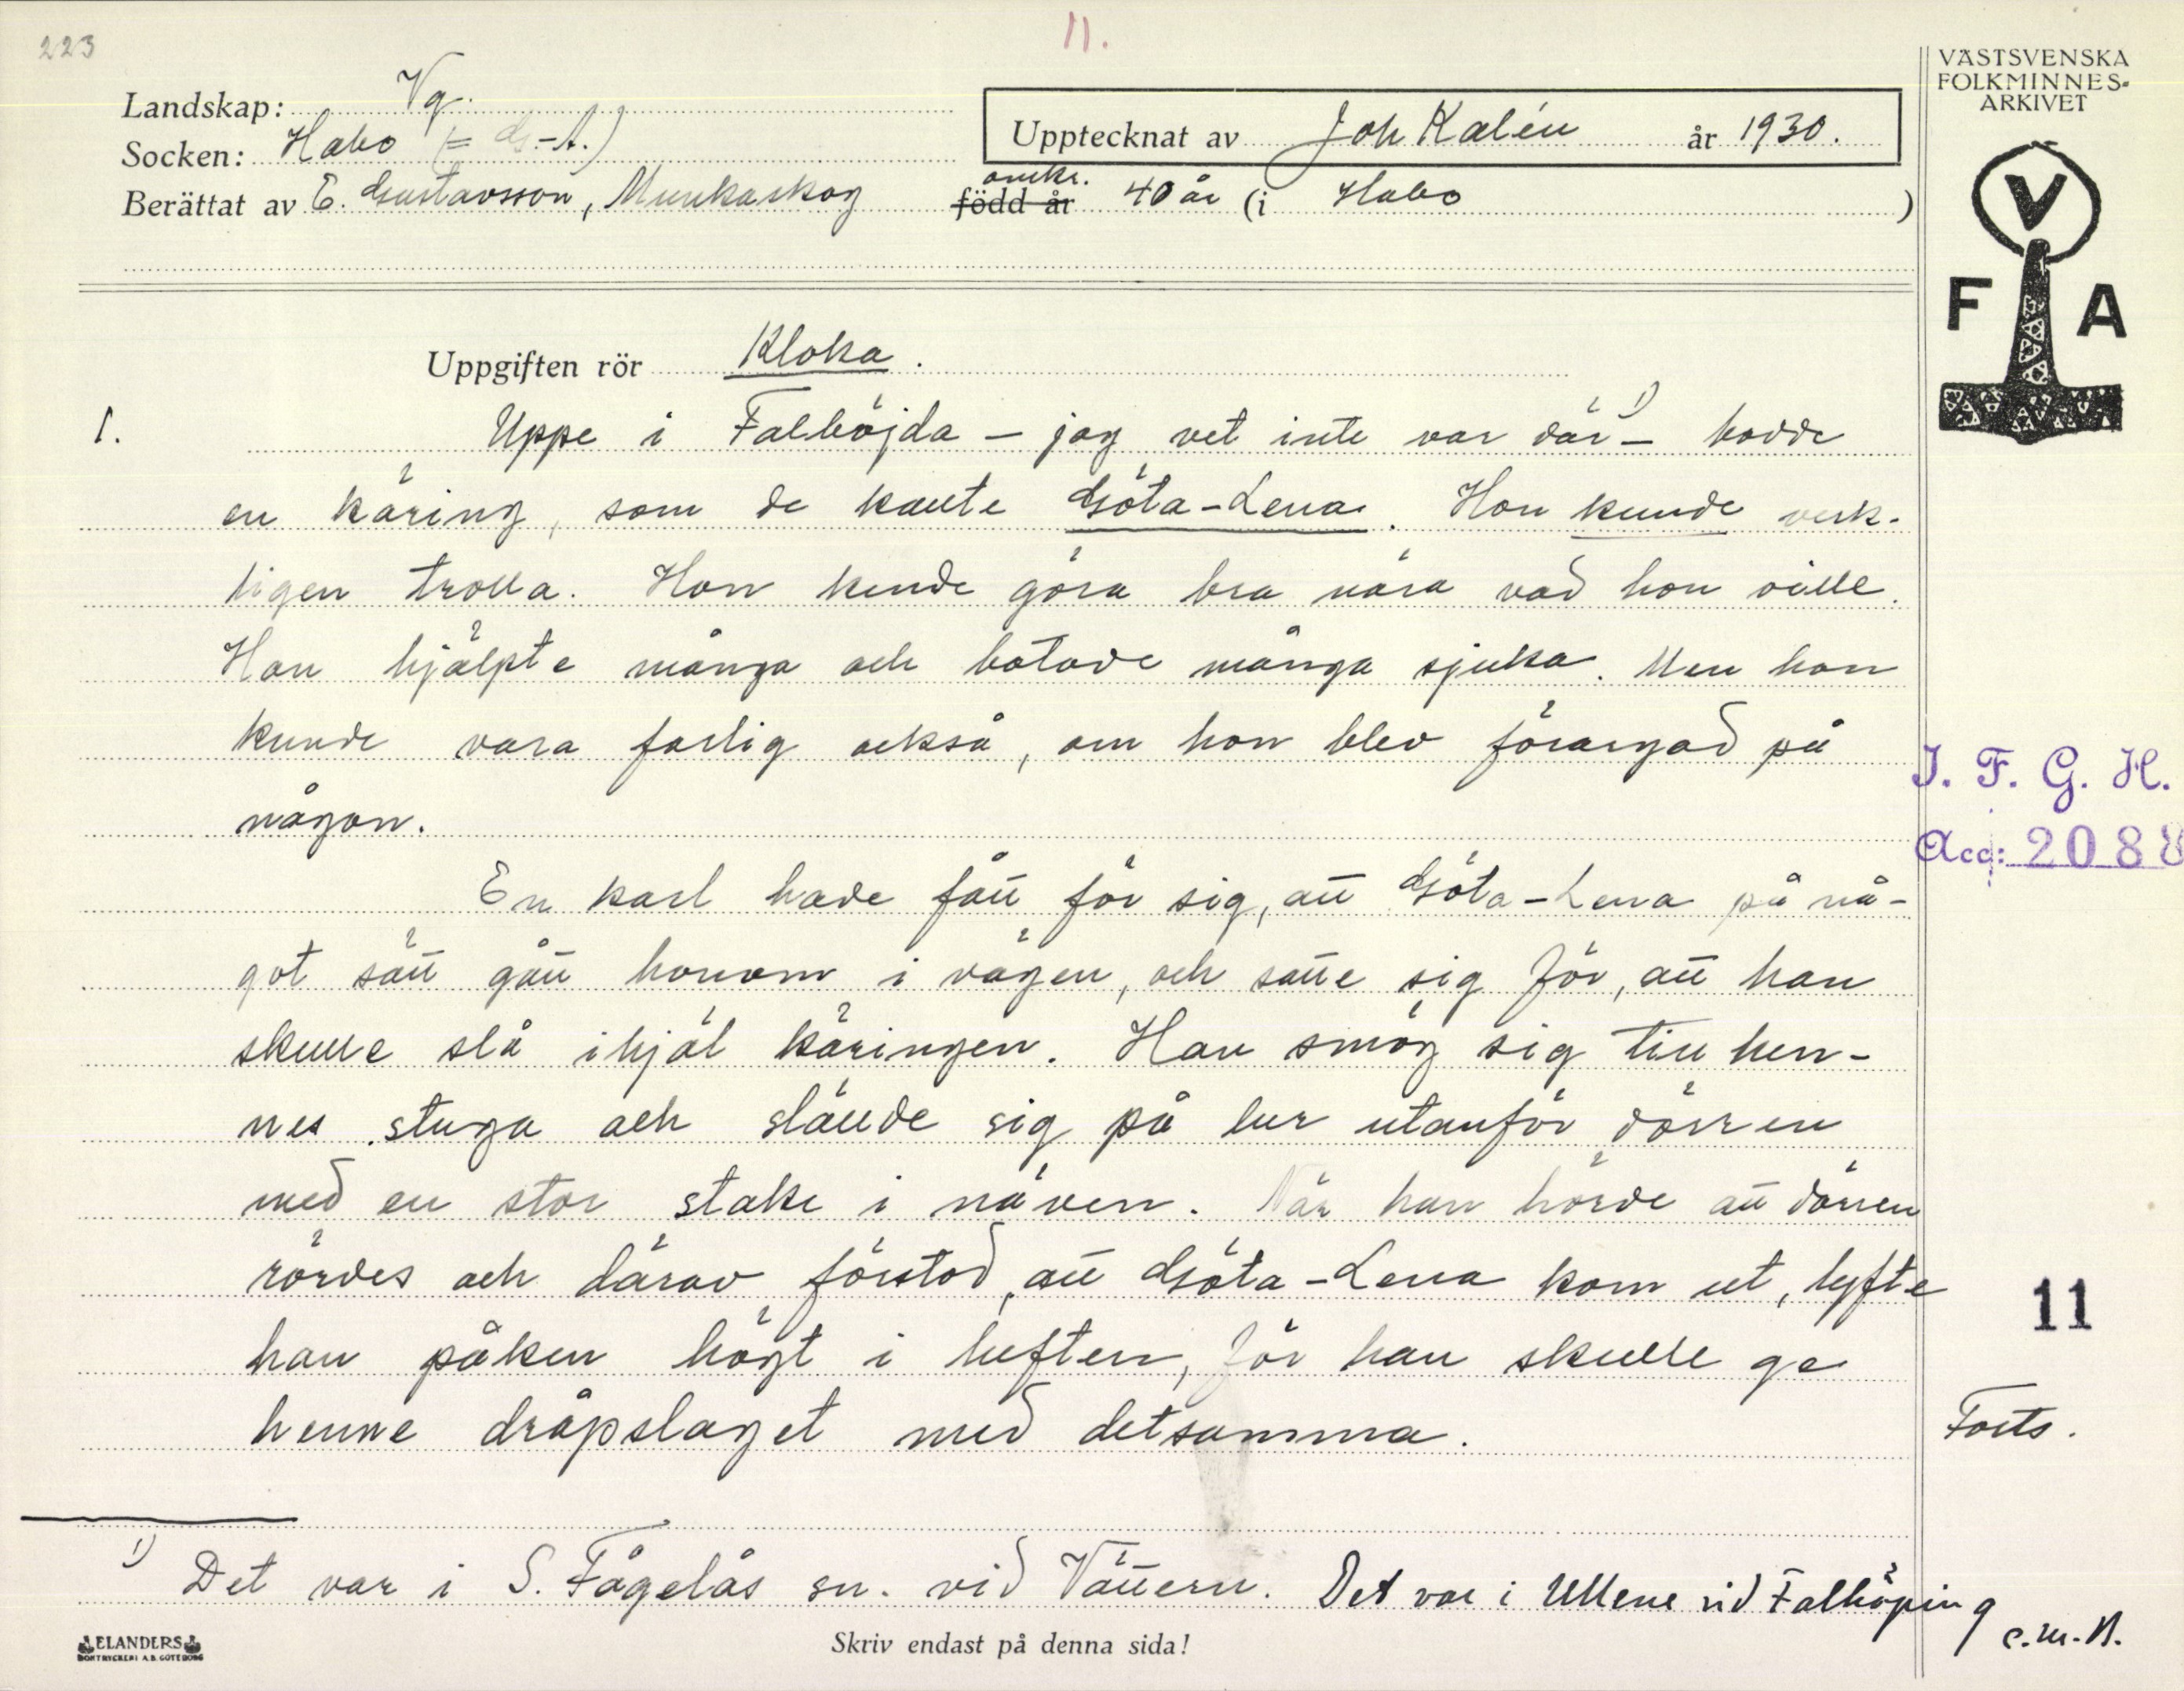 223
11.
VÄSTSVENSKA
FOLKMINNES-
ARKIVET
Landskap: Vg.
Upptecknat av Joh Kalén år 1930.
Socken: Habo (= G.-A.)
omkr.
Berättat av E. Gustavsson, Munkaskog född år 40 år (i Habo )
V
F A
Uppgiften rör Kloka.
1. Uppe i Falböjda – jag vet inte var där 1) – bodde
en käring, som de kallte Göta-Lena. Hon kunde verk-
ligen trolla. Hon kunde göra bra nära vad hon ville.
Hon hjälpte många och botade många sjuka. Men hon
kunde vara farlig också, om hon blev förargad på
någon.
I. F. G. H.
Acc: 2088
En karl hade fått för sig, att Göta-Lena på nå-
got sätt gått honom i vägen, och satte sig för, att han
skulle slå ihjäl käringen. Han smög sig till hen-
nes stuga och ställde sig på lur utanför dörren
med en stor stake i näven. När han hörde att dörren
rördes och därav förstod, att Göta-Lena kom ut, lyfte
11
han påken högt i luften, för han skulle ge
henne dråpslaget med detsamma.
Forts.
1) Det var i S. Fågelås sn. vid Vättern. Det var i Ullene vid Falköping
C.M.B.
ELANDERS
BOKTRYCKERI A.B. GÖTEBORG
Skriv endast på denna sida!